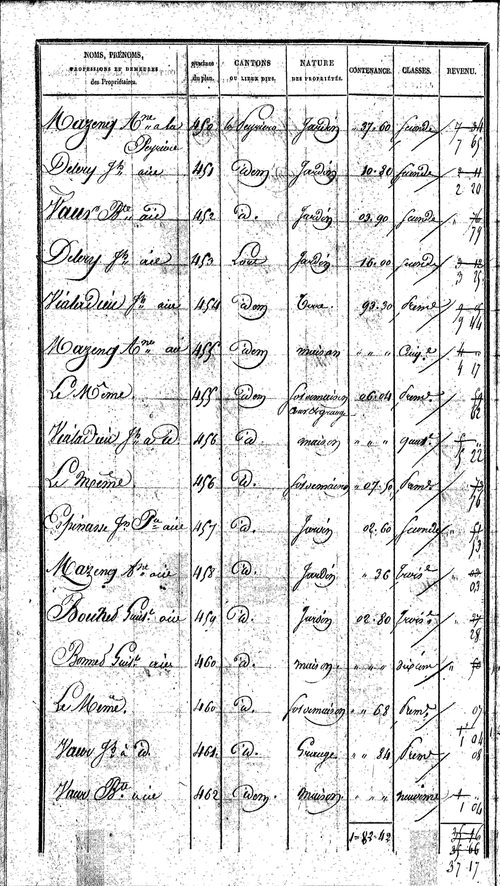 NOMS, PRÉNOMS, PROFESSIONS ET DEMEURES des Propriétaires. | NUMÉROS du plan. | CANTONS OU LIEUX DITS. | NATURE DES PROPRIÉTÉS. | CONTENANCE. | CLASSES. | REVENU.
Mazenq Ane a la Peyrière | 450 | la Peyriere | Jardin | 37.60 | seconde | 7 34 7 65
Delery Jh aîé | 451 | idem | Jardin | 10.80 | seconde | 2 20
Vaur Bte aîd | 452 | id. | Jardin | 03.90 | seconde | 79
Delery Jh aié | 453 | Jardin | 16.00 | seconde | 3 25
Vialadieu Jh aié | 454 | idem | Terre | 93.30 | Prem.e | 19 44
Mazenq Ane aié | 455 | idem | maison | " " " | Cinq.e | 4 17
Le Même | 455 | idem | sol de maison | 06.04 | Prem.e | 62
Vialadieu Jh a id | 456 | id | maison | " " " | quat.e | 5 22
Le Même | 456 | id. | sol de maison | 07.50 | Prem.e | 76
Espinasse Jn Pre aié | 457 | id. | Jardin | 02.60 | Seconde | 53
Mazenq Ane aié | 458 | id. | Jardin | " 36 | Trois.e | 03
aié | 459 | id. | Jardin | 02.80 | Trois.e | 28
aié | 460 | id. | maison. | " " "
Le Même. | 460 | id. | sol de maison | " " 68 | Prem.e | 07
Vaur Jh à id | 461 | id. | Grange | " " 84 | Prem.e | 08
Vaur Bte aié | 462 | idem. | Maison. | " " " | neuvième | 1 04
1=83.42 | 37 17